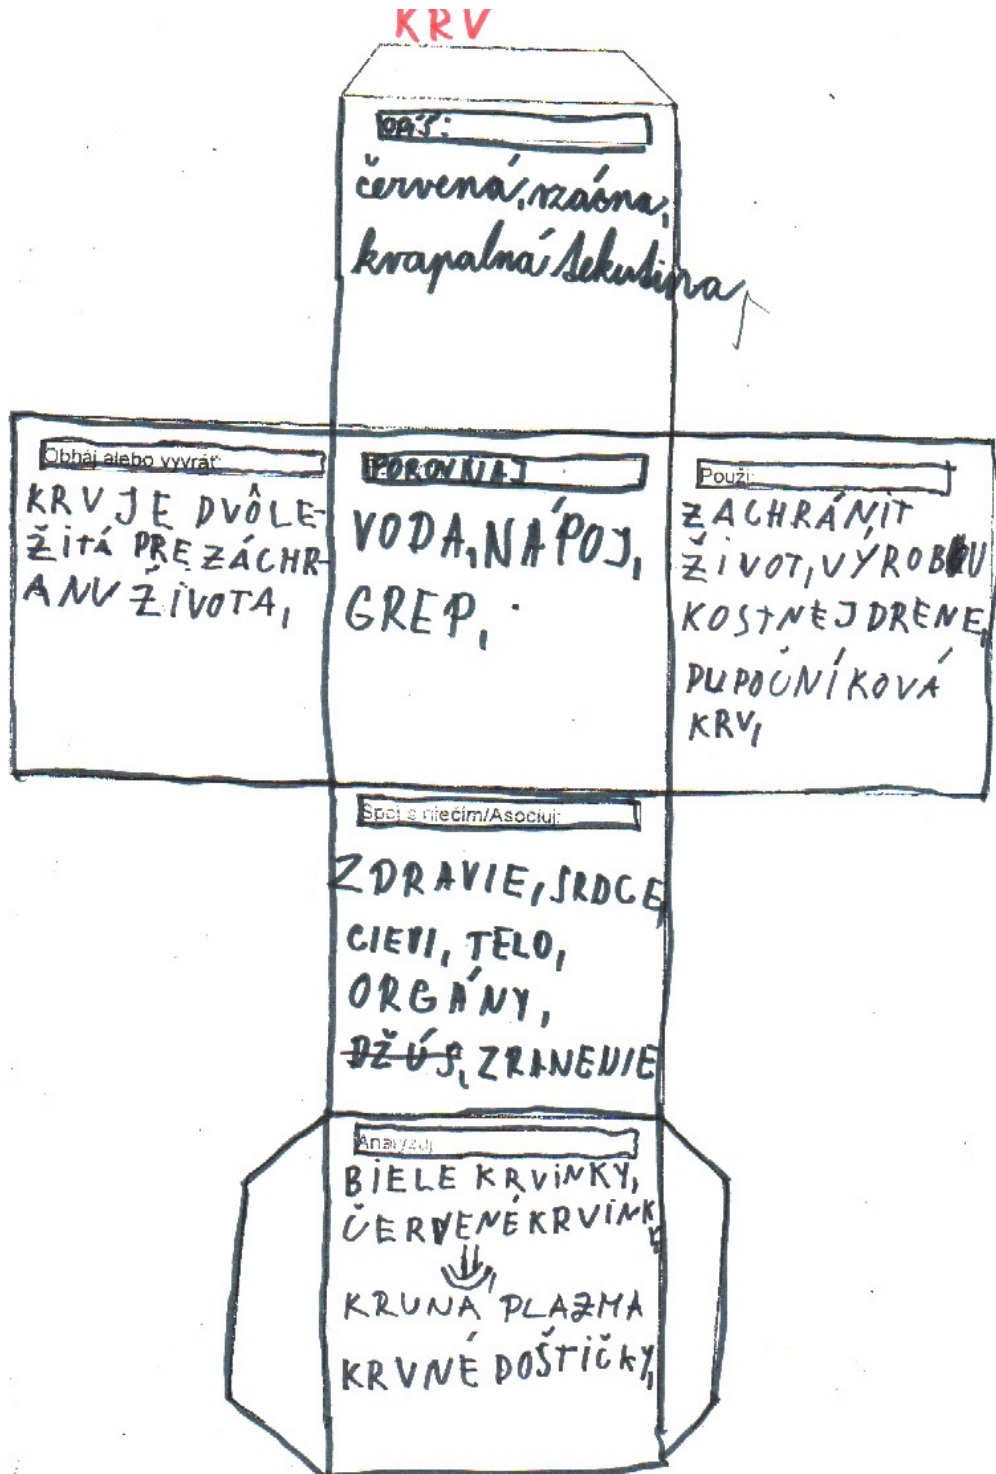 KRV
OPÍŠ:
červená, vzácna,
kvapalná tekutina,
Obháj alebo vyvráť:
KRV JE DVÔLE-
ŽITÁ PRE ZÁCHR-
ANU ŽIVOTA,
POROVNAJ
VODA, NÁPOJ,
GREP,
Použi:
ZACHRÁNIŤ
ŽIVOT, VÝROBKU
KOSTNEJ DRENE,
PUPOČNÍKOVÁ
KRV,
Spoj s niečím/Asociuj:
ZDRAVIE, SRDCE,
CIEVI, TELO,
ORGÁNY,
DŽÚS, ZRANENIE
Analyzuj
BIELE KRVINKY,
ČERVENÉ KRVINKY,
KRVNÁ PLAZMA
KRVNÉ DOŠTIČKY,